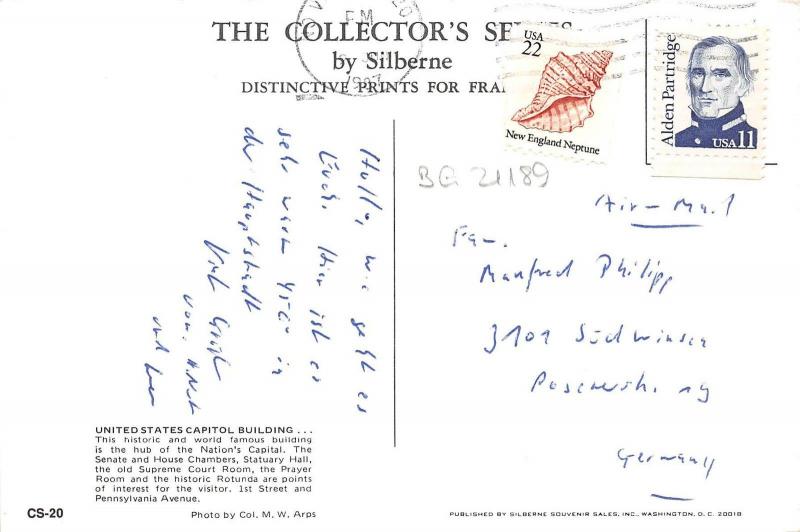 THE COLLECTOR'S SERIES
by Silberne
DISTINCTIVE PRINTS FOR FRA
PM
1987
USA
22
New England Neptune
Alden Partridge
USA 11
BG 21189
Hallo, wie geht es
Euch. Hier ist es
sehr warm 45°C in
der Hauptstadt
Viel Grüße
von
und
Air-Mail
Fam.
Manfred Philipp
3101 Südwinsen
Germany
UNITED STATES CAPITOL BUILDING ...
This historic and world famous building
is the hub of the Nation's Capital. The
Senate and House Chambers, Statuary Hall,
the old Supreme Court Room, the Prayer
Room and the historic Rotunda are points
of interest for the visitor. 1st Street and
Pennsylvania Avenue.
CS-20
Photo by Col. M. W. Arps
PUBLISHED BY SILBERNE SOUVENIR SALES, INC., WASHINGTON, D. C. 20018